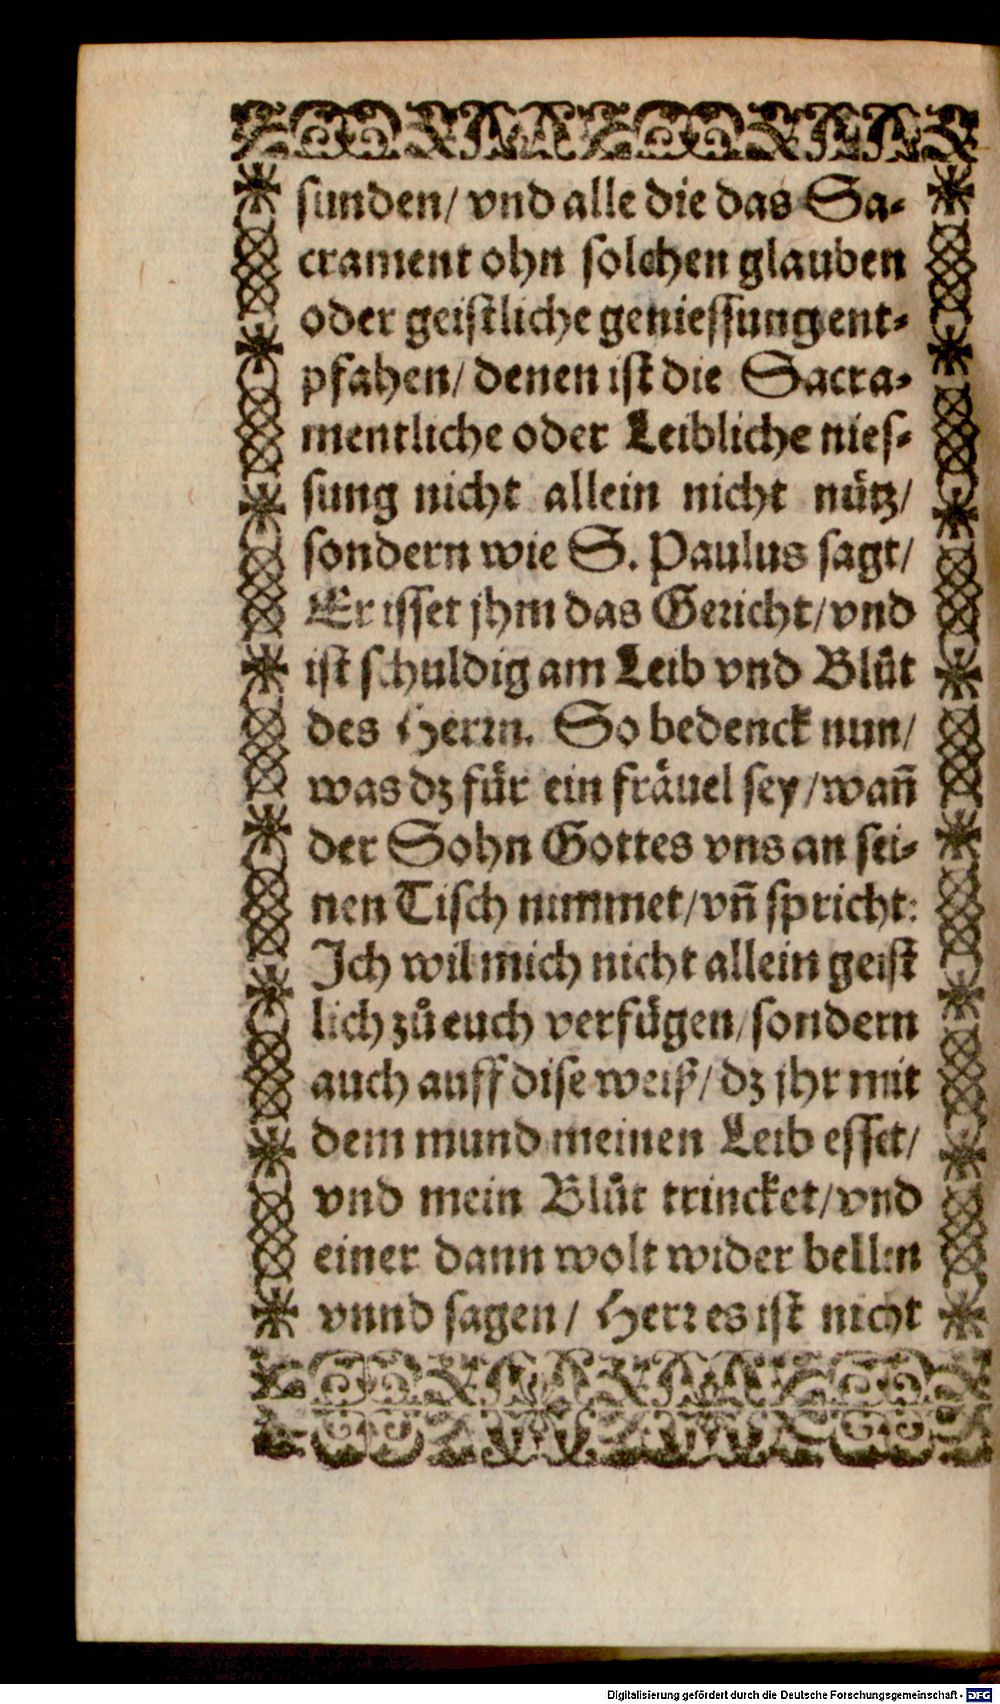 sunden/ vnd alle die das Sa⸗
crament ohn solchen glauben
oder geistliche geniessung ent⸗
pfahen/ denen ist die Sacra⸗
mentliche oder Leibliche nies⸗
sung nicht allein nicht nütz/
sondern wie S. Paulus sagt/
Er isset jhm das Gericht/ vnd
ist schuldig am Leib vnd Blůt
des Herrn. So bedenck nun/
was dz für ein fräuel sey/ wañ
der Sohn Gottes vns an sei⸗
nen Tisch nimmet/ vñ spricht:
Ich wil mich nicht allein geist
lich zů euch verfügen/ sondern
auch auff dise weiß/ dz jhr mit
dem mund meinen Leib esset/
vnd mein Blůt trincket/ vnd
einer dann wolt wider bellen
vnnd sagen/ Herr es ist nicht
Digitalisierung gefördert durch die Deutsche Forschungsgemeinschaft - DFG